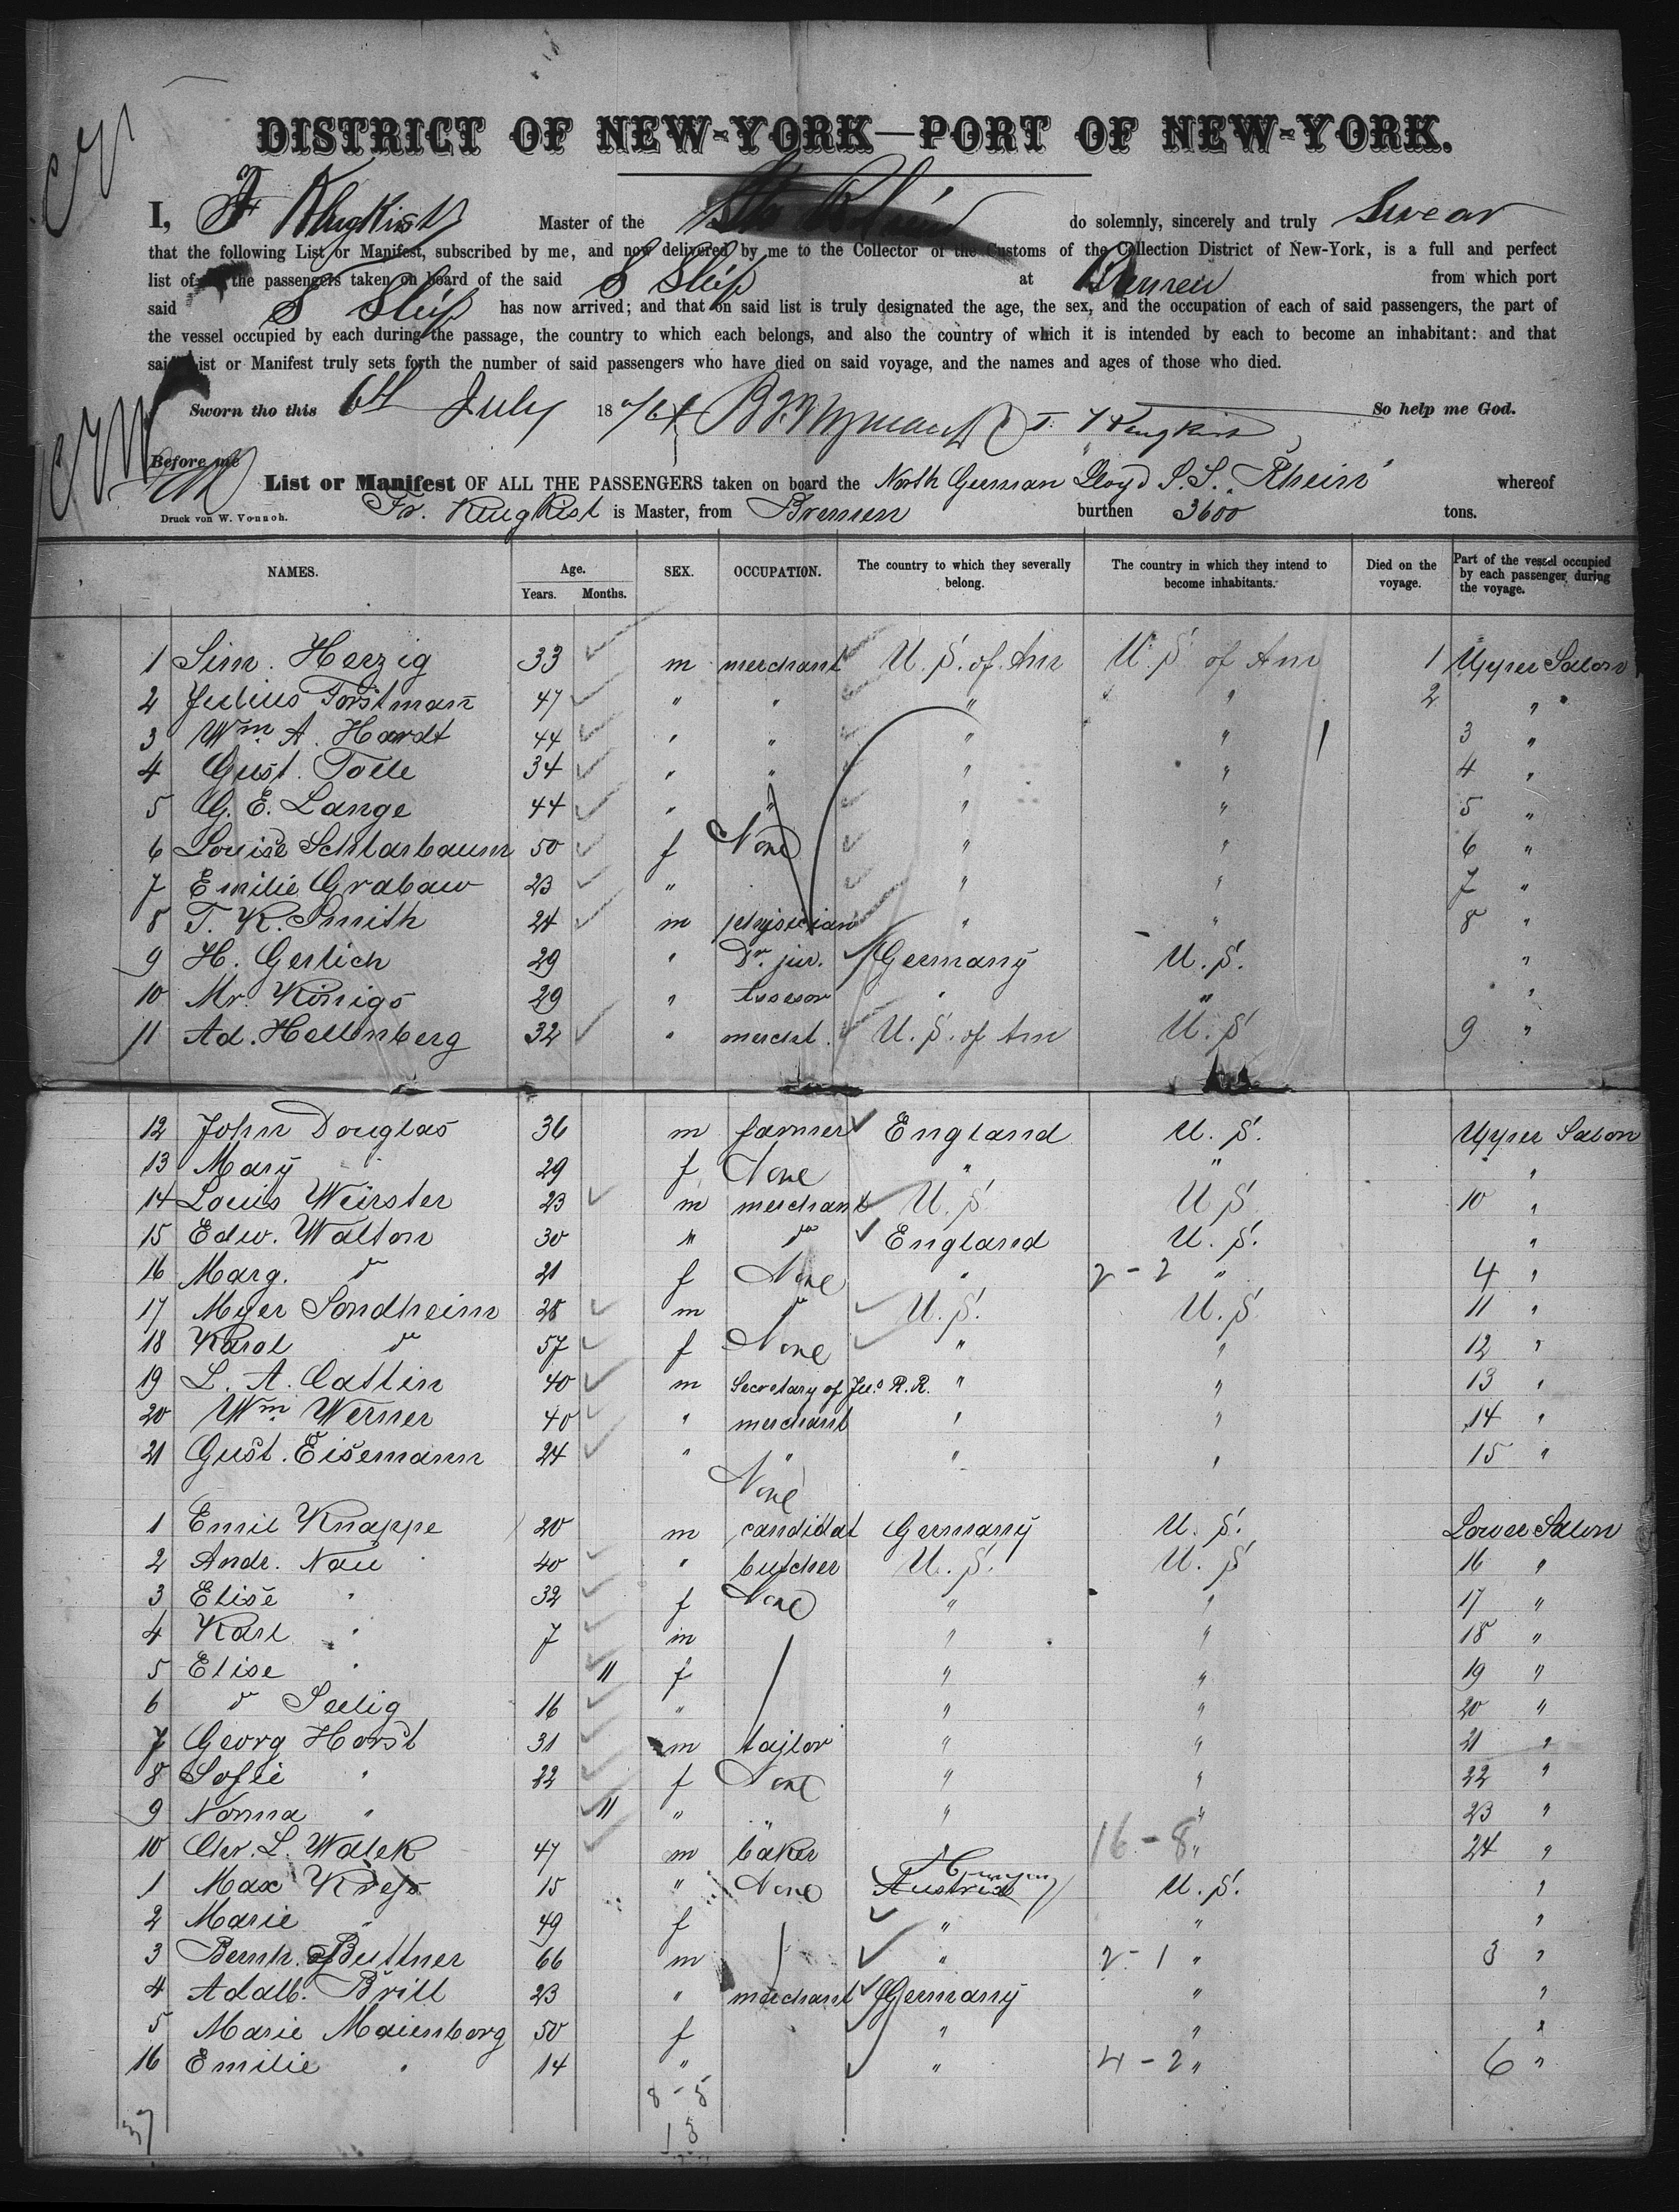 DISTRICT OF NEW-YORK—PORT OF NEW-YORK.
I, F Klugkist Master of the Str Rhein do solemnly, sincerely and truly Swear
that the following List or Manifest, subscribed by me, and now delivered by me to the Collector of the Customs of the Collection District of New-York, is a full and perfect
list of the passengers taken on board of the said S Ship at Bremen from which port
said S Ship has now arrived; and that on said list is truly designated the age, the sex, and the occupation of each of said passengers, the part of
the vessel occupied by each during the passage, the country to which each belongs, and also the country of which it is intended by each to become an inhabitant: and that
said List or Manifest truly sets forth the number of said passengers who have died on said voyage, and the names and ages of those who died.
Sworn tho this 6th July 18 So help me God.
Before me
List or Manifest OF ALL THE PASSENGERS taken on board the North German Lloyd S.S. "Rhein" whereof
Druck von W. Vonnoh. Fr. Klugkist is Master, from Bremen burthen 3600 tons.
NAMES. Age. Years. Months. SEX. OCCUPATION. The country to which they severally belong. The country in which they intend to become inhabitants. Died on the voyage. Part of the vessel occupied by each passenger during the voyage.
1 Sim. Herzig 33 m merchant U. S. of Am U. S. of Am 1 Upper Salon
2 Julius Forstmann 47 " " " " 2 "
3 Wm A. Hardt 44 " " " " 3 "
4 Gust. Tolle 34 " " " " 4 "
5 G. E. Lange 44 " " " " 5 "
6 Louise Schlarbaum 50 f None " " 6 "
7 Emilie Grabaw 23 " " " 7 "
8 T. K. Smith 24 m physician " " 8 "
9 H. Gerlich 29 " Dr. jur. Germany U. S. "
10 Mr. Königs 29 " Assesor " " "
11 Ad. Hellenberg 32 " mercht. U. S. of Am U. S 9 "
12 John Douglas 36 m farmer England U. S. Upper Salon
13 Mary " 29 f None " " "
14 Louis Würster 23 m merchant U. S. U S. 10 "
15 Edw. Walton 30 " do England U. S. "
16 Marg. do 21 f None " 2 - 2 " 4 "
17 Myer Sondheim 28 m do U. S. U. S. 11 "
18 Karol do 57 f None " " 12 "
19 L. A. Catlin 40 m Secretary of R. R. " " 13 "
20 Wm Werner 40 " merchant " " 14 "
21 Gust. Eisemann 24 " " " " 15 "
None
1 Emil Knappe 20 m candidat Germany U. S. Lower Salon
2 Andr. Nau 40 " butcher U. S. U. S 16 "
3 Elise " 32 f None " " 17 "
4 Karl " 7 m " " 18 "
5 Elise " 11 f " " 19 "
6 do Seelig 16 " " " 20 "
7 Georg Horst 31 m tajlor " " 21 "
8 Sofie " 22 f None " " 22 "
9 Norma " 11 " " " " 23 "
10 Chr. L. Walek 47 m bäker " 16 - 8 " 24 "
1 Max Kress 15 " None Austria Hungary U. S. "
2 Marie " 49 f " " "
3 Bernh. Buttner 66 m " 2 - 1 " 3 "
4 Adalb. Brill 23 " merchant Germany " "
5 Marie Maienborg 50 f " " "
16 Emilie " 14 " " 4 - 2 " 6 "
8 - 5
37
13